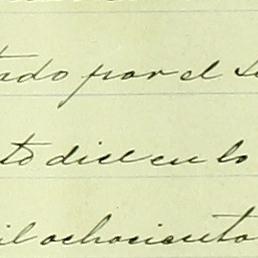 tado por el S
to dice en lo
il ochociento